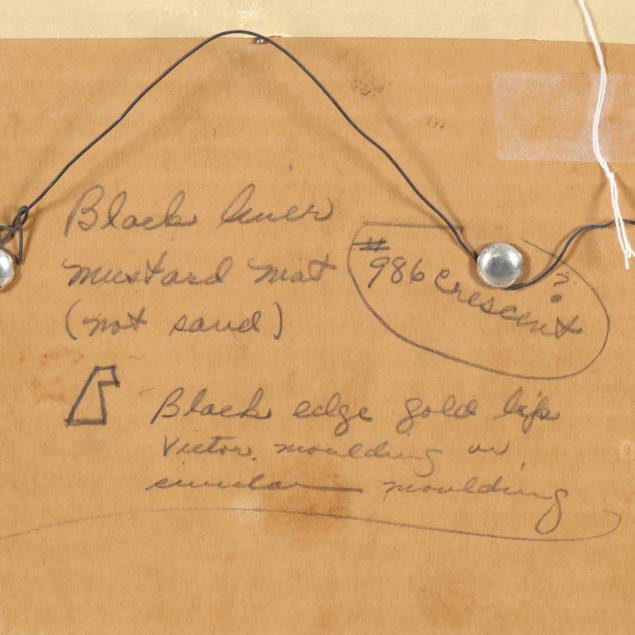 Black liner
mustard mat
(not sand)
#986 Crescent
Black edge gold lip
Victor moulding or
similar moulding